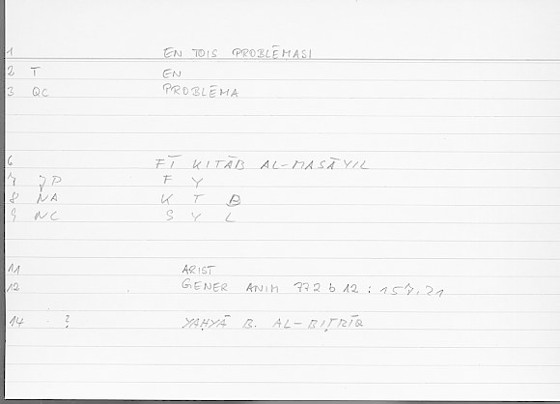 1 EN TOIS PROBLĒMASI
2 T EN
3 QC PROBLĒMA
6 FĪ KITĀB AL-MASĀYIL
7 JP F Y
8 NA K T B
9 NC S Y L
11 ARIST
12 GENER ANIM 772 b 12 : 157.21
14 ? YAḤYĀ B. AL-BIṬRĪQ